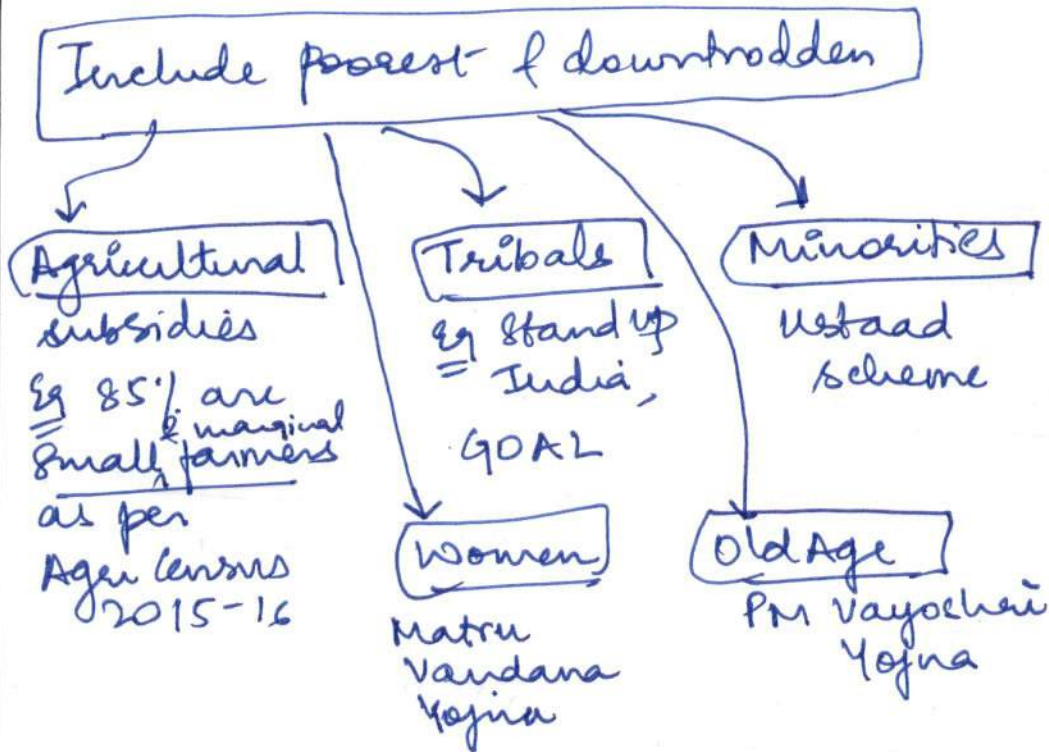 Include poorest & downtrodden
Agricultural
subsidies
Eg 85% are
small & marginal farmers
as per
Agri Census
2015-16
Tribals
Eg Stand up
India,
GOAL
Minorities
Ustaad
scheme
Women
Matru
Vandana
Yojna
Old Age
PM Vayoshri
Yojna